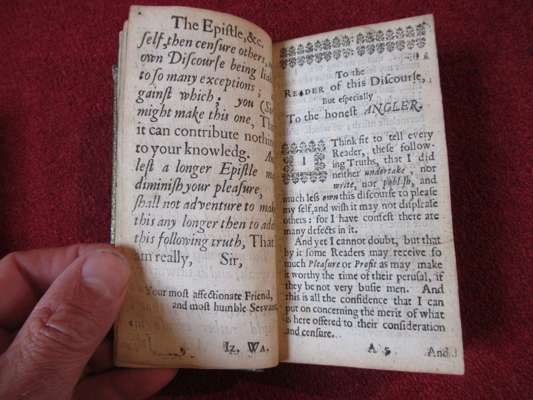 The Epiſtle, &c.
ſelf, then cenſure others,
own Diſcourſe being lia
to ſo many exceptions;
gainſt which, you (Sir
might make this one, Th
it can contribute nothin
to your knowledg. An
leſt a longer Epiſtle ma
diminiſh your pleaſure,
ſhall not adventure to mak
this any longer then to add
this following truth, That
am really, Sir,
Your moſt affectionate Friend,
and moſt humble Servant
Iz. Wa.
To the
READER of this Diſcourſe,
but eſpecially
To the honeſt ANGLER.
I Think fit to tell every
Reader, theſe follow-
ing Truths, that I did
neither undertake, nor
write, nor publiſh, and
much leſs own this diſcourſe to pleaſe
my ſelf, and wiſh it may not diſpleaſe
others: for I have confeſt there are
many defects in it.
And yet I cannot doubt, but that
by it ſome Readers may receive ſo
much Pleaſure or Profit as may make
it worthy the time of their peruſal, if
they be not very buſie men. And
this is all the confidence that I can
put on concerning the merit of what
is here offered to their conſideration
and cenſure.
A 5 And